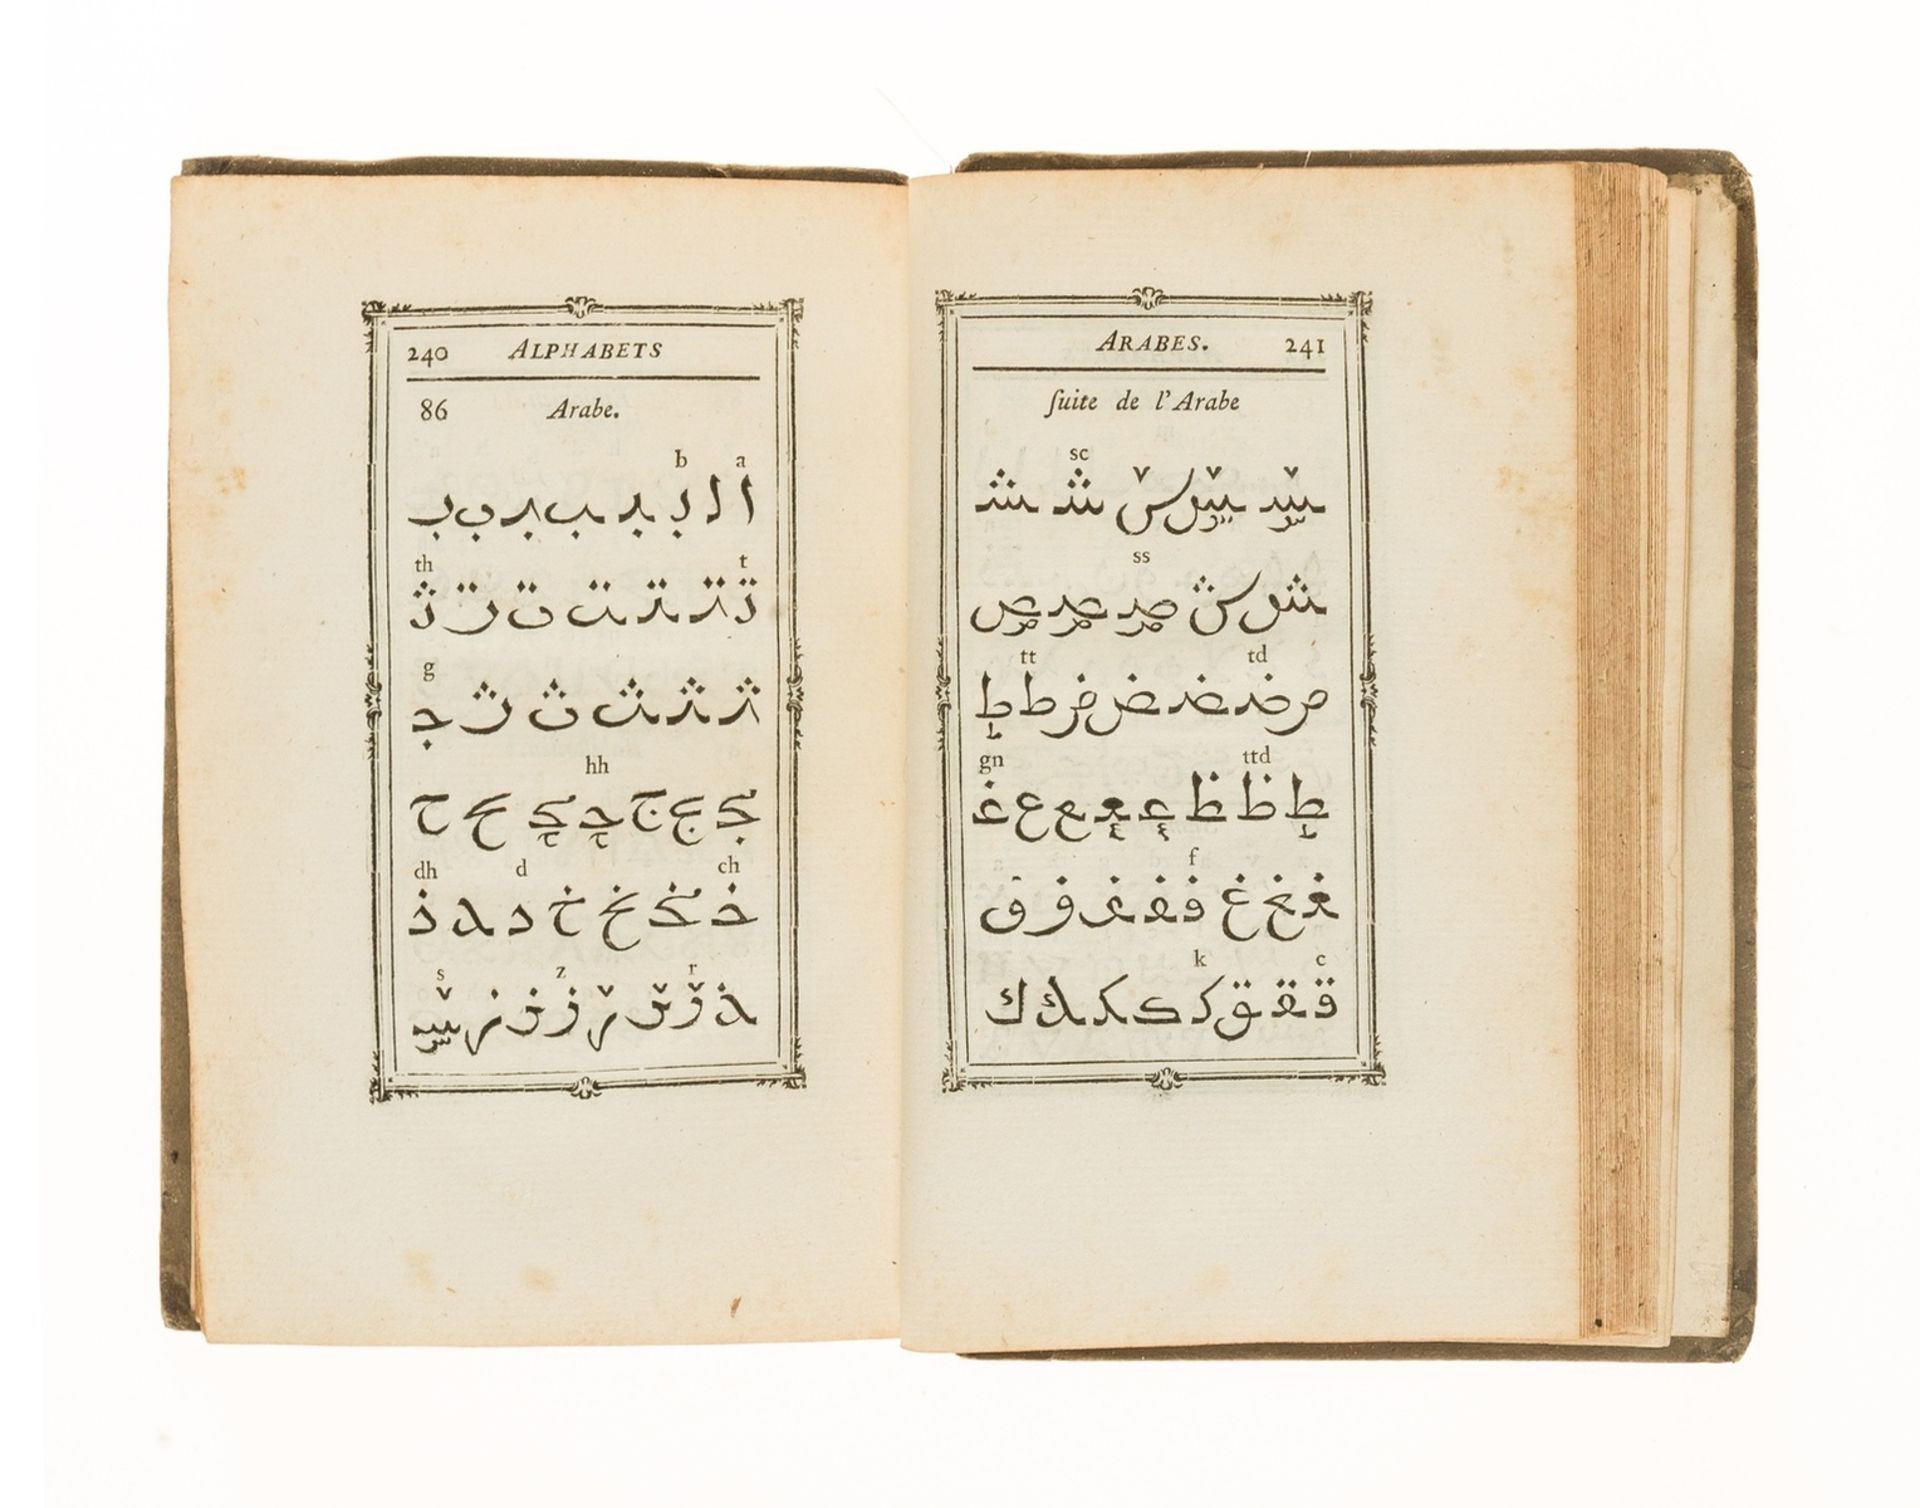 240 ALPHABETS
86 Arabe.
b a
ا ا ب ب ب ب ب ب
th t
ت ت ت ت ت ت ث
g
ث ث ث ث ث ج
hh
ج ج ج ح ح ح ح
dh d ch
خ خ خ خ د د ذ
s z r
ذ ر ر ر ز ز ز س
ARABES. 241
ſuite de l'Arabe
sc
س س س ش ش
ss
ش ش ش ص ص ص
tt td
ص ض ض ض ض ط ط
gn ttd
ط ظ ظ ع ع ع ع غ
f
غ غ غ ف ف ف ف ف
k c
ق ق ق ك ك ك ك ك